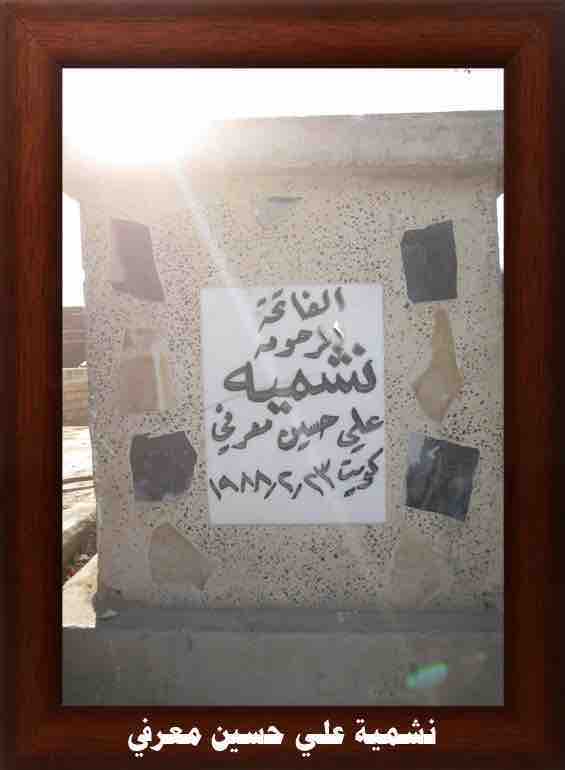 الفاتحة
المرحومه
نشميه
علي حسين معرفي
كويت ١٩٨٨/٢/٢٣
نشمية علي حسين معرفي